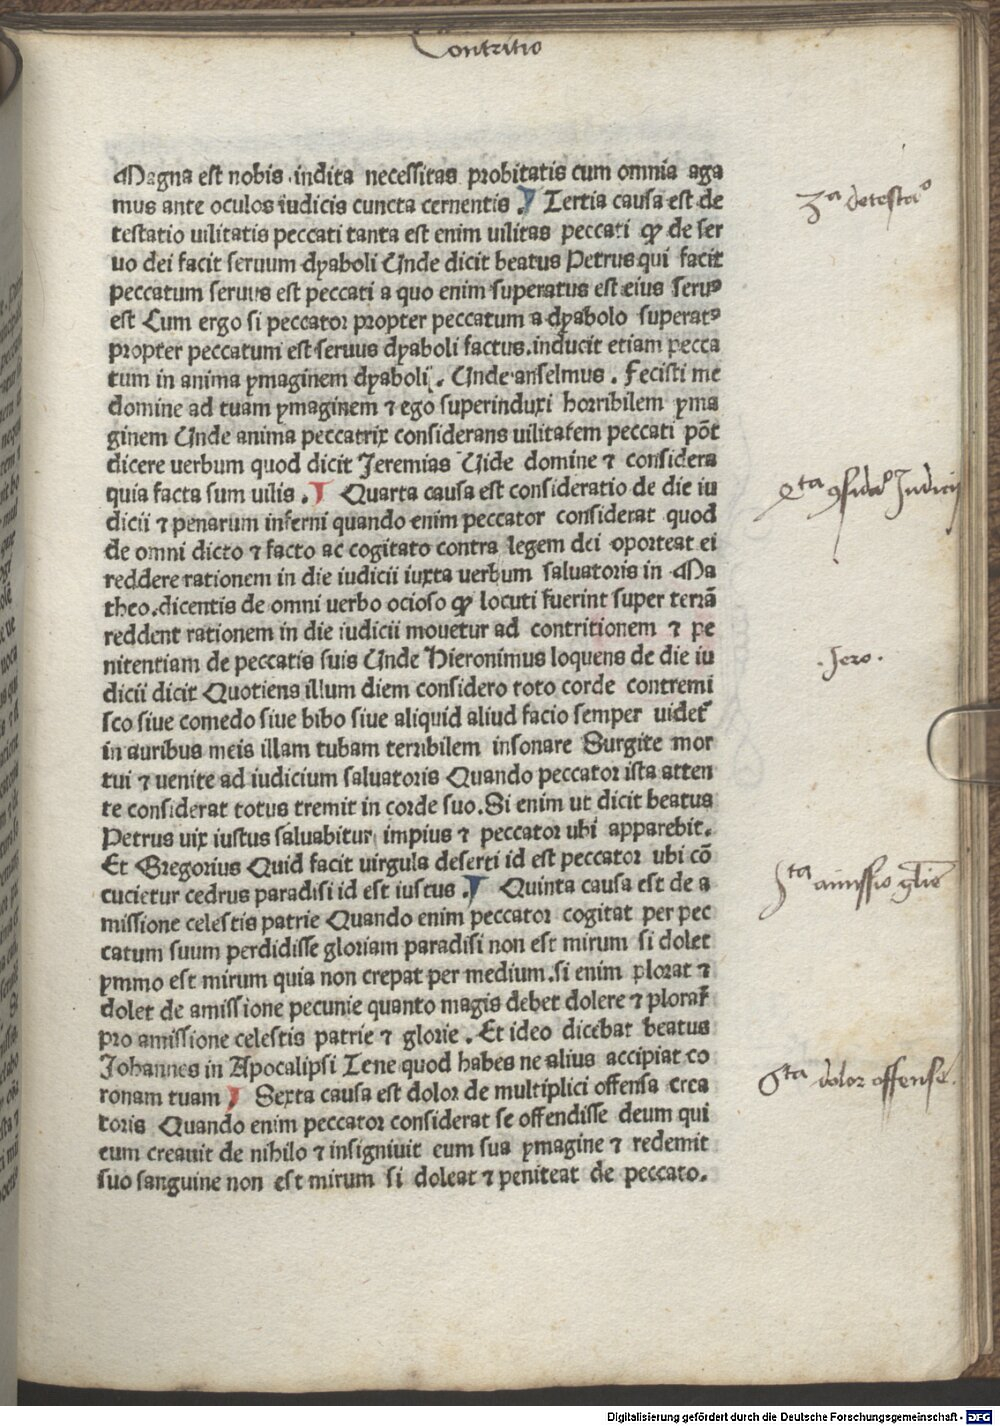 Contritio
Magna est nobis indita necessitas probitatis cum omnia aga
mus ante oculos iudicis cuncta cernentis . Tertia causa est de
3a detestao
testatio uilitatis peccati tanta est enim uilitas peccati ꝙ de ser
uo dei facit seruum dyaboli Unde dicit beatus Petrus qui facit
peccatum seruus est peccati a quo enim superatus est eius seruꝰ
est Cum ergo si peccator propter peccatum a dyabolo superatꝰ
propter peccatum est seruus dyaboli factus. inducit etiam pecca
tum in anima ymaginem dyaboli . Unde anselmus . Fecisti me
domine ad tuam ymaginem ⁊ ego superinduxi horribilem yma
ginem Unde anima peccatrix considerans uilitatem peccati põt
dicere uerbum quod dicit Jeremias Uide domine ⁊ considera
quia facta sum uilis . Quarta causa est consideratio de die iu
4ta ꝯsidao Judicij
dicii ⁊ penarum inferni quando enim peccator considerat quod
de omni dicto ⁊ facto ac cogitato contra legem dei oporteat ei
reddere rationem in die iudicii iuxta uerbum saluatoris in Ma
theo. dicentis de omni uerbo ocioso ꝙ locuti fuerint super terrã
reddent rationem in die iudicii mouetur ad contritionem ⁊ pe
nitentiam de peccatis suis Unde Hieronimus loquens de die iu
.Jero.
dicii dicit Quotiens illum diem considero toto corde contremi
sco siue comedo siue bibo siue aliquid aliud facio semper uidet᷑
in auribus meis illam tubam terribilem insonare Surgite mor
tui ⁊ uenite ad iudicium saluatoris Quando peccator ista atten
te considerat totus tremit in corde suo. Si enim ut dicit beatus
Petrus uix iustus saluabitur impius ⁊ peccator ubi apparebit.
Et Gregorius Quid facit uirgula deserti id est peccator ubi cõ
cucietur cedrus paradisi id est iustus . Quinta causa est de a
5ta amissio glie
missione celestis patrie Quando enim peccator cogitat per pec
catum suum perdidisse gloriam paradisi non est mirum si dolet
ymmo est mirum quia non crepat per medium. si enim plorat ⁊
dolet de amissione pecunie quanto magis debet dolere ⁊ plorar̃
pro amissione celestis patrie ⁊ glorie . Et ideo dicebat beatus
Johannes in Apocalipsi Tene quod habes ne alius accipiat co
ronam tuam Sexta causa est dolor de multiplici offensa crea
6ta dolor offense.
toris Quando enim peccator considerat se offendisse deum qui
eum creauit de nihilo ⁊ insigniuit eum sua ymagine ⁊ redemit
suo sanguine non est mirum si doleat ⁊ peniteat de peccato.
Digitalisierung gefördert durch die Deutsche Forschungsgemeinschaft - DFG